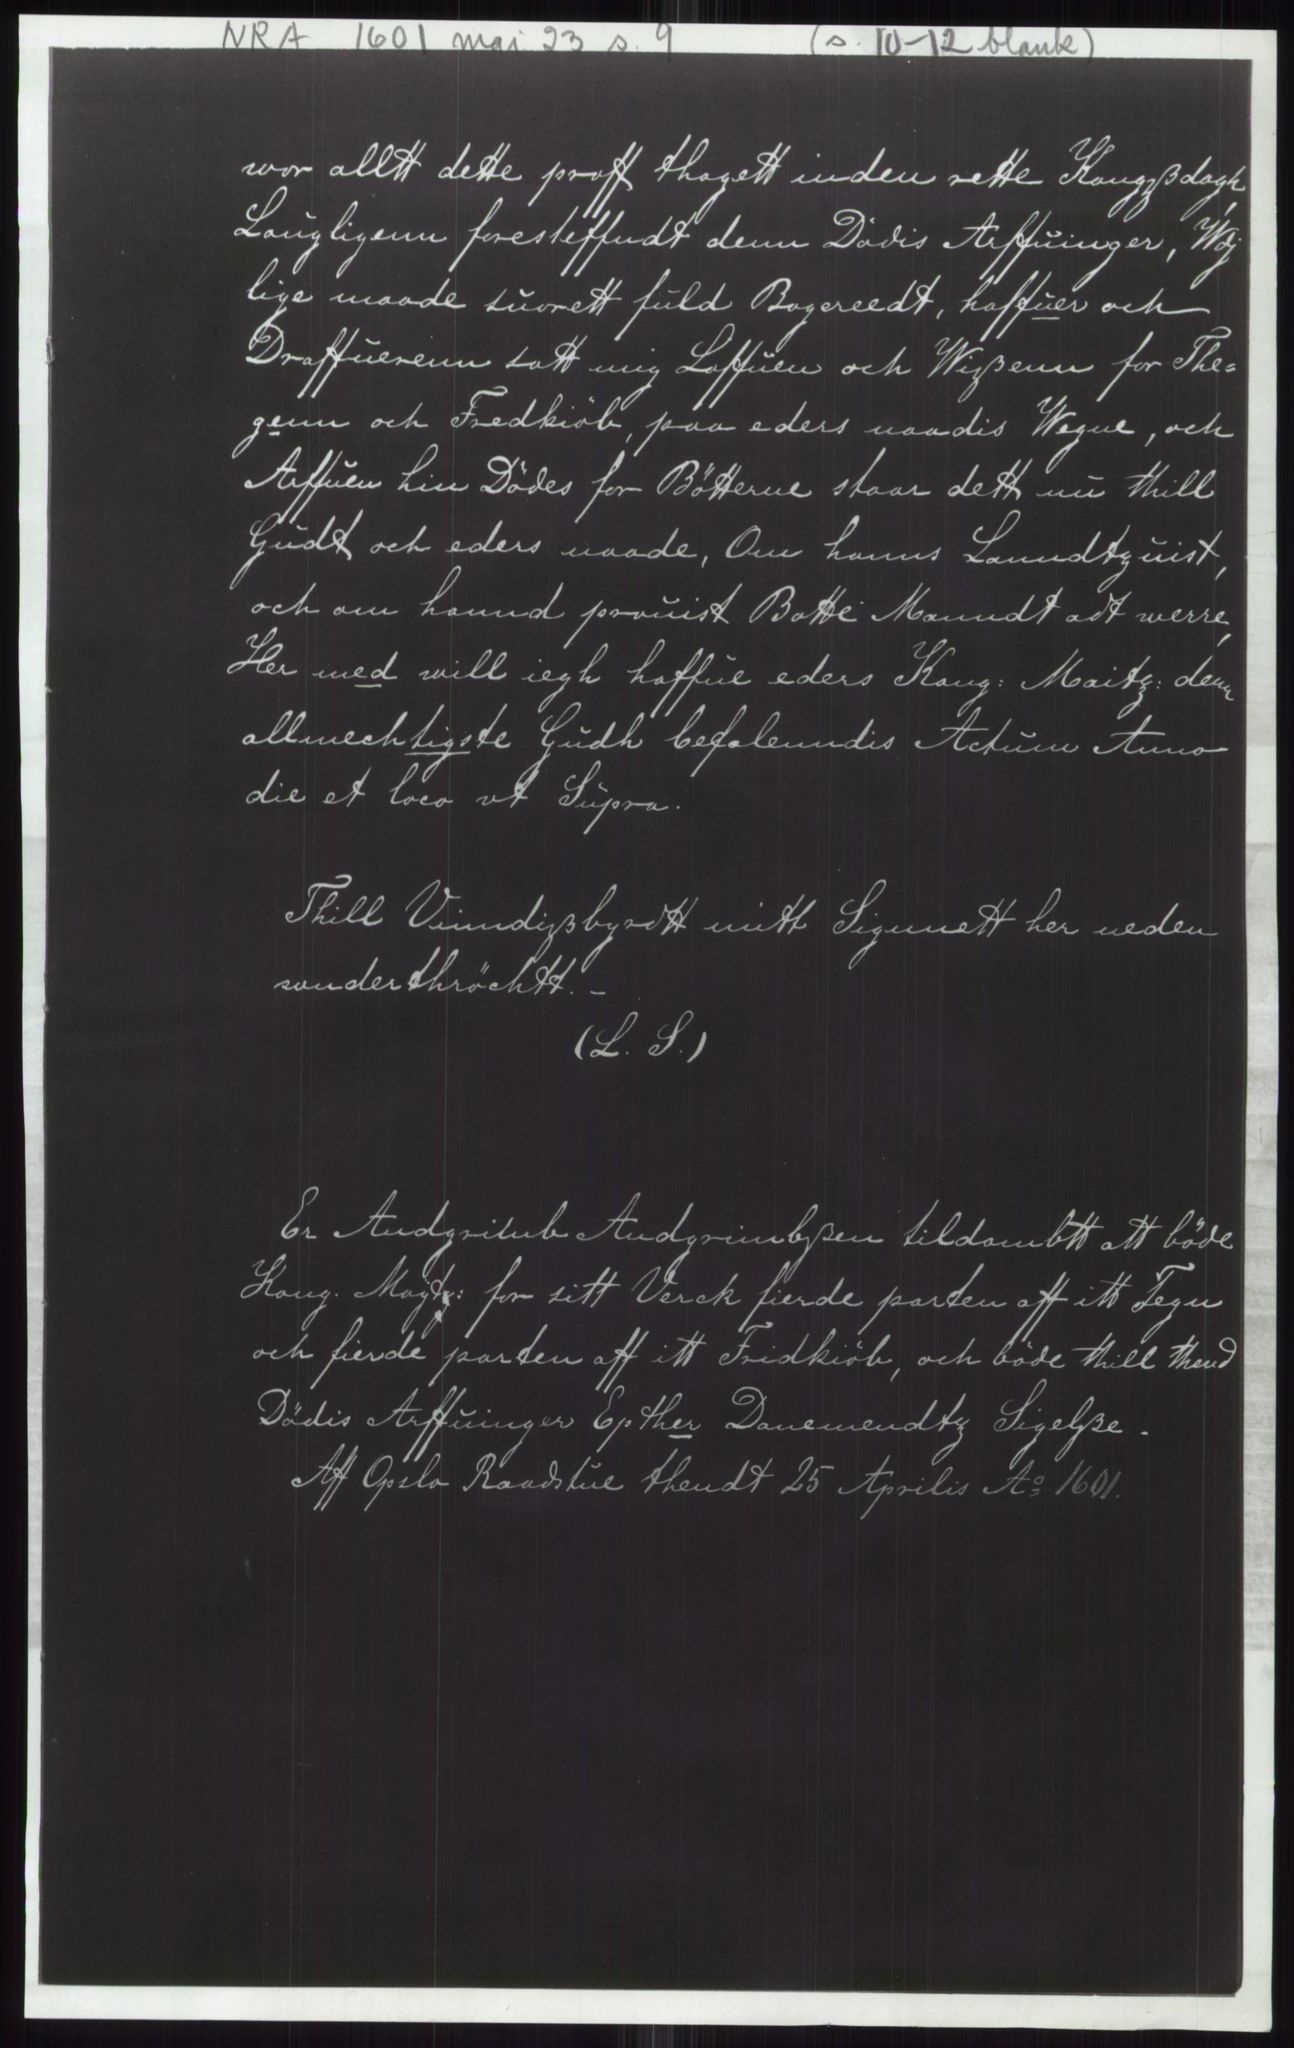 NRA 1601 mai 23 s. 9 (s. 10-12 blank)
wor alltt dette proff thagett inden rette Kongzßdagh,
Laugligenn foresteffndt denn Dödis Arffuinger, Wdj
lige maade suorett fuld Bogereedt, haffuer och
Draffuerenn satt mig Loffuen och Wißenn for The=
genn och Fredkiöb, paa eders naadis Wegne, och
Arffuen hin Dödes for Bötterne staar dett nu thill
Gudt och eders naade, Om hanns Lanndtzuist,
och om hannd prouist Botte Manndt adt werre,
Her med will iegh haffue eders Kong: Maitz: denn
allmechtigste Gudh befalenndis Actum Anno
die et loco vt Supra.
Thill Vinndizßbyrdt mitt Signnett her neden
wnderthröchtt. -
(L. S.)
Er Andgrimb Andgrimbßen tildömbtt att böde
Kong. Maytz: for sitt Verck fierde parten aff itt Tegn
och fierde parten aff itt Fridkiöb, och böde thill thend
Dödis Arffuinger Epther Danemendtz Sigelße.
Aff Opslo Raadstue thendt 25 Aprilis Ao 1601.